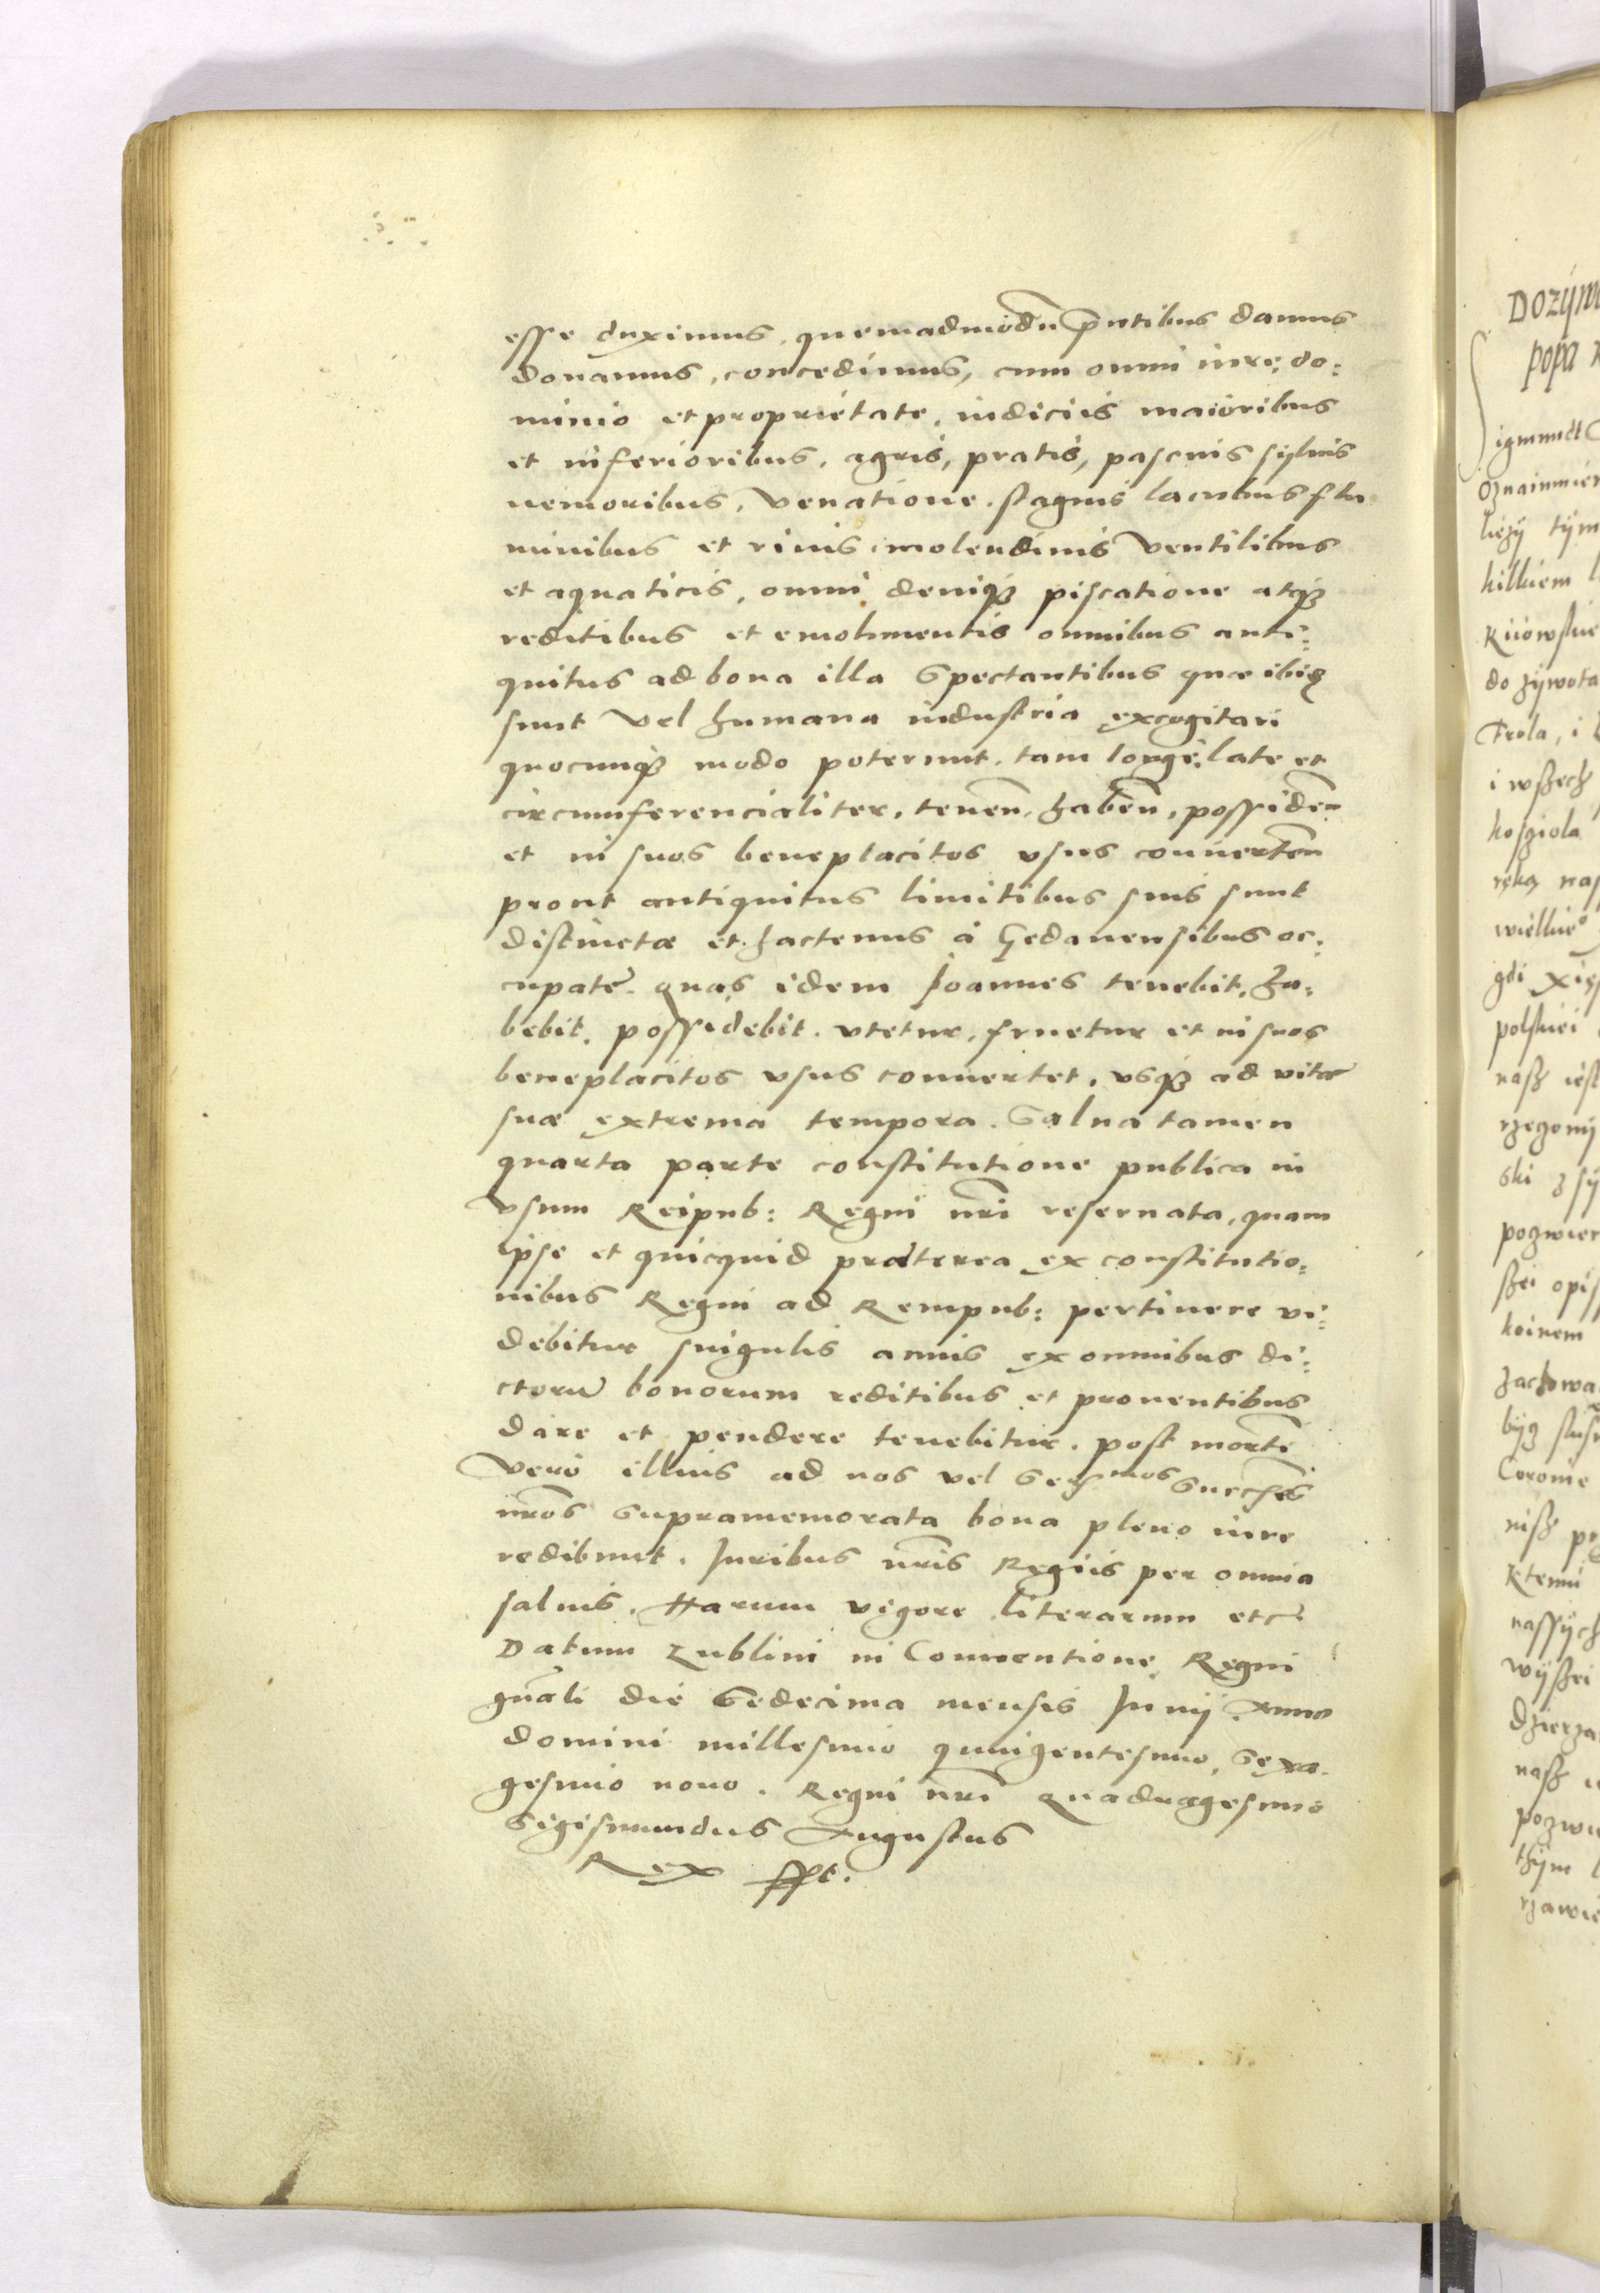 esse duximus, quemadmodũ p̃ntibus damus
donamus, concedimus, cum omni iure, do:
minio et proprietate, iudicijs maioribus
et inferioribus, agris, pratis, pascuis syluis
nemoribus, venatione, stagnis lacubus flu
minibus et riuis, molendinis ventilibus
et aquaticis, omni deniq3 piscatione atq3
reditibus et emolumentis omnibus anti:
quitus ad bona illa spectantibus quæ ibiq3
sunt vel humana industria excogitari
quocunq3 modo poterunt, tam longe, late et
circumferencialiter, teneñ, habeñ, possideñ
et in suos beneplacitos vsus conuerteñ
prout antiquitus limitibus suis sunt
distinctæ et hactenus à Gedanensibus oc:
cupatæ. quas idem Joannes tenebit, ha:
bebit, possidebit, vtetur, fruetur et in suos
beneplacitos vsus conuertet, vsq3 ad vitæ
suæ extrema tempora. Salua tamen
quarta parte constitutione publica in
vsum Reipub: Regni nr̃i reseruata, quam
ipse et quicquid præterea ex constitutio:
nibus Regni ad Rempub: pertinere vi:
debitur singulis annis ex omnibus di:
ctorũ bonorum reditibus et prouentibus
dare et pendere tenebitur. post mortẽ
vero illius ad nos vel Ser͠mos Success͠
nr̃os supramemorata bona pleno iure
redibunt. Juribus nr̃is Regijs per omnia
saluis. Harum vigore literarum etc̃
Datum Lublini in Conuentione Regni
gn̄ali die Sedecima mensis Junij Anno
domini millesimo quingentesimo, Sexa:
gesimo nono. Regni nr̃i Quadragesimo
Sigismundus Augustus
Rex sspt.
Dozÿw
popa
igmundt
oznaimuiem
liezÿ tÿm
hilkiem
Kiiowskie
do zÿwota
Frola, i
i wszech
kosziola
ręką nas
wielkie°
gdi xięs
polskiei
nasz iest
rzegonÿ
ski z sÿ
pozwier
szei opis
koinem
zachowa
bÿz slus
Coronie
nisz prz
Ktemu
nassÿch
wÿszei
dzierza
nasz
pozwu
thÿm
rzawie